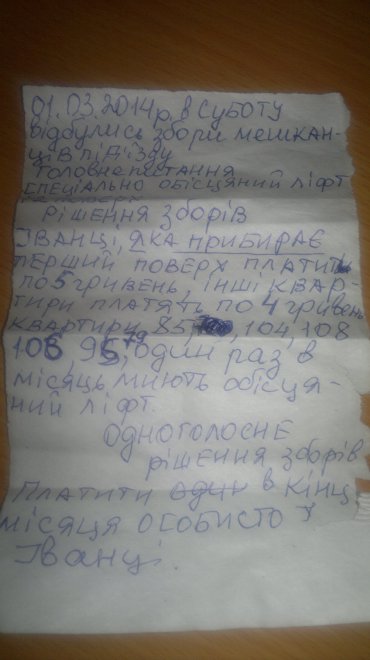 01.03.2014р. в СУБОТУ
відбулись збори мешкан-
ців під'їзду
Головне питання
СПЕЦІАЛЬНО ОБІСЦЯНИЙ ЛІФТ
РІШЕННЯ ЗБОРІВ
ІВАНЦІ, ЯКА ПРИБИРАЄ
ПЕРШИЙ ПОВЕРХ ПЛАТИТЬ
ПО 5 ГРИВЕНЬ, ІНШІ КВАР-
ТИРИ ПЛАТЯТЬ ПО 4 ГРИВЕНЬ
КВАРТИРИ 85, 104, 108
106 95, 79 один раз в
місяць миють обісця-
ний ліфт.
ОДНОГОЛОСНЕ
рішення зборів
Платити один в кінц
місяця особисто у
Іванці.